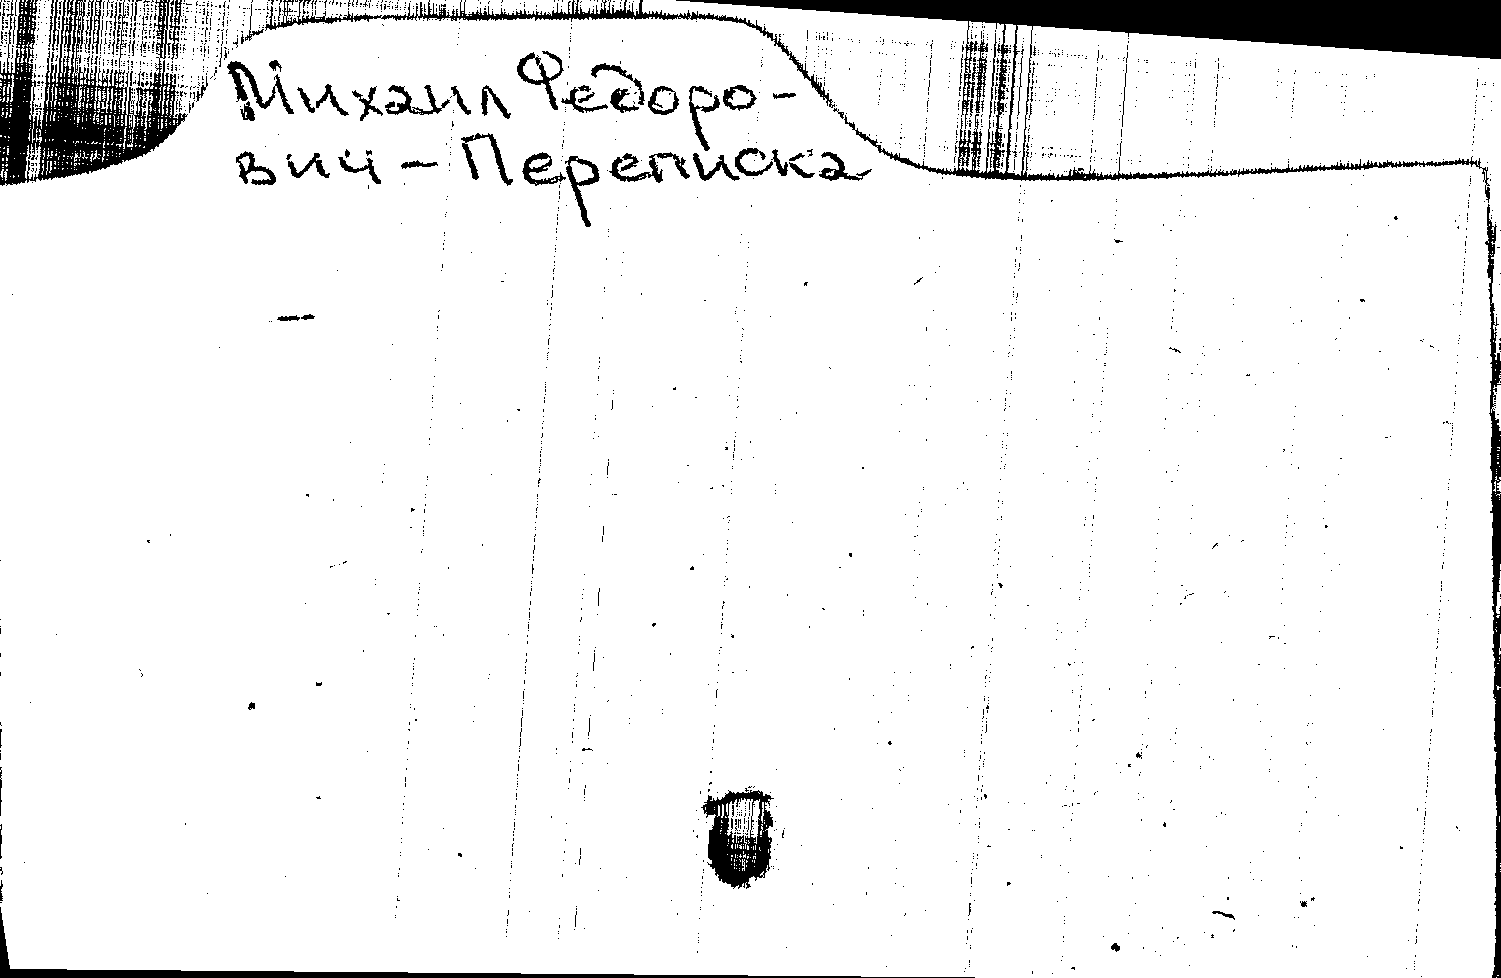 Михаил Федоро-
вич - Переписка